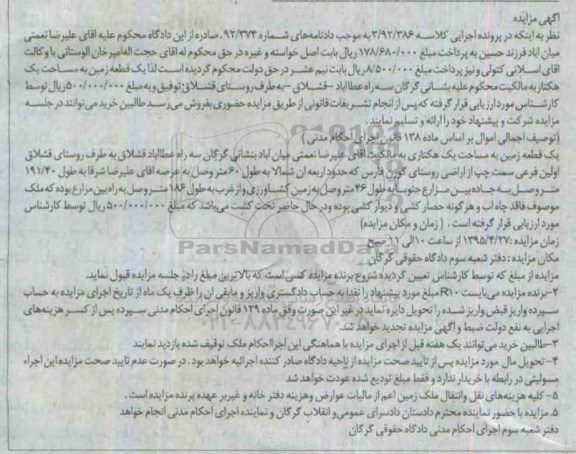 آگهی مزایده
نظر به اینکه در پرونده اجرایی کلاسه ۳/۹۲/۳۸۶ به موجب دادنامه‌های شماره ۹۲/۳۷۴ صادره از این دادگاه محکوم علیه آقای علیرضا نعمتی
میان آباد فرزند حسین به پرداخت مبلغ ۱۷۸/۶۸۰/۰۰۰ ریال بابت اصل خواسته و غیره در حق محکوم له آقای حجت اله امیرخان الوستانی با وکالت
آقای اسلانی کتولی و نیز پرداخت مبلغ ۸/۵۰۰/۰۰۰ ریال بابت نیم عشر در حق دولت محکوم گردیده است لذا یک قطعه زمین به مساحت یک
هکتار به مالکیت محکوم علیه بشانی گرگان سه راه عطاآباد - قشلاق - به طرف روستای قشلاق توقیف و به مبلغ ۵۰۰/۰۰۰/۰۰۰ ریال توسط
کارشناس مورد ارزیابی قرار گرفته که پس از انجام تشریفات قانونی از طریق مزایده حضوری بفروش می‌رسد طالبین خرید می‌توانند در جلسه
مزایده شرکت و پیشنهاد خود را ارائه و تسلیم نمایند.
(توصیف اجمالی اموال بر اساس ماده ۱۳۸ قانون اجرای احکام مدنی)
یک قطعه زمین به مساحت یک هکتاری به مالکیت آقای علیرضا نعمتی میان آباد بنشانی گرگان سه راه عطاآباد قشلاق به طرف روستای قشلاق
اولین فرعی سمت چپ از اراضی روستای گوزن فارس که حدود اربعه آن شمالا به طول ۶۰ متر وصل به عرصه آقای علیرضا شرفا به طول ۱۹۱/۴۰
متر وصل به جاده بین مزارع جنوبا به طول ۴۶ متر وصل به زمین کشاورزی و از غرب به طول ۱۸۶ متر وصل به راه بین مزارع بوده که ملک
موصوف فاقد چاه آب و هرگونه حصارکشی و دیوارکشی بوده و در حال حاضر تحت کشت می‌باشد که مبلغ ۵۰۰/۰۰۰/۰۰۰ ریال توسط کارشناس
مورد ارزیابی قرار گرفته است. (زمان و مکان مزایده)
زمان مزایده: ۱۳۹۵/۴/۲۷ از ساعت ۱۰ الی ۱۱ صبح
مکان مزایده: دفتر شعبه سوم دادگاه حقوقی گرگان
مزایده از مبلغ که توسط کارشناس تعیین گردیده شروع برنده مزایده کسی است که بالاترین مبلغ را در جلسه مزایده قبول نماید.
۲-برنده مزایده می‌بایست R۱۰ مبلغ مورد پیشنهاد را نقدا به حساب دادگستری واریز و مابقی آن را ظرف یک ماه از تاریخ اجرای مزایده به حساب
سپرده واریز قبض واریز شده را تحویل دایره نماید در غیر این صورت وفق ماده ۱۲۹ قانون اجرای احکام مدنی سپرده پس از کسر هزینه‌های
اجرایی به نفع دولت ضبط و آگهی مزایده تجدید خواهد شد.
۳-طالبین خرید می‌توانند یک هفته قبل از اجرای مزایده با هماهنگی این اجرا احکام ملک توقیف شده بازدید نمایند
۴-تحویل مال مورد مزایده پس از تایید صحت مزایده از ناحیه دادگاه صادر کننده اجرائیه خواهد بود. در صورت عدم تایید صحت مزایده این اجراء
مسولیتی در رابطه با خریدار ندارد و فقط مبلغ تودیع شده عودت خواهد شد
۵- کلیه هزینه‌های نقل و انتقال ملک زمین اعم از مالیات عوارض و هزینه دفتر خانه و غیر بر عهده برنده مزایده است.
۵. مزایده با حضور نماینده محترم دادستان دادسرای عمومی و انقلاب گرگان و نماینده اجرای احکام مدنی انجام خواهد
دفتر شعبه سوم اجرای احکام مدنی دادگاه حقوقی گرگان
ParsNamadData